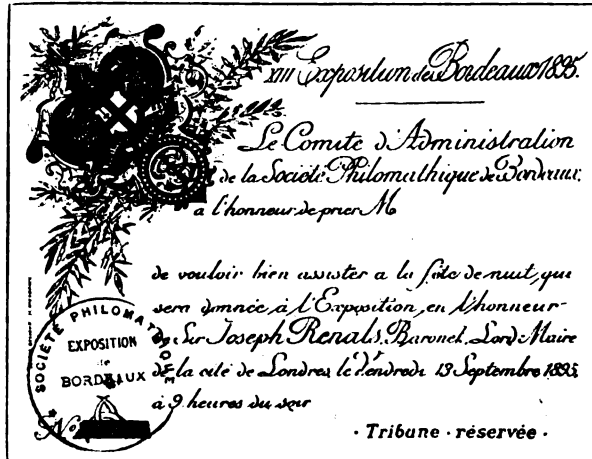 XIII Exposition de Bordeaux 1895.
Le Comité d'Administration
de la Société Philomathique de Bordeaux
a l'honneur de prier M
de vouloir bien assister a la fête de nuit, qui
sera donnée à l'Exposition, en l'honneur
de Sir Joseph Renals, Baronet, Lord-Maire
de la cité de Londres le Vendredi 13 Septembre 1895
à 9 heures du soir
SOCIÉTÉ PHILOMATHIQUE
EXPOSITION
de
BORDEAUX
No
· Tribune · réservée ·